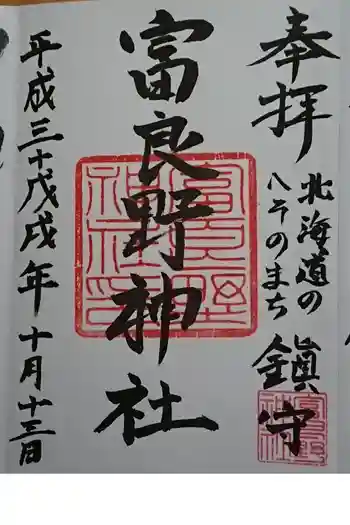 奉拝
北海道の
へそのまち
鎮守
富良野神社
平成三十戊戌年十月十三日